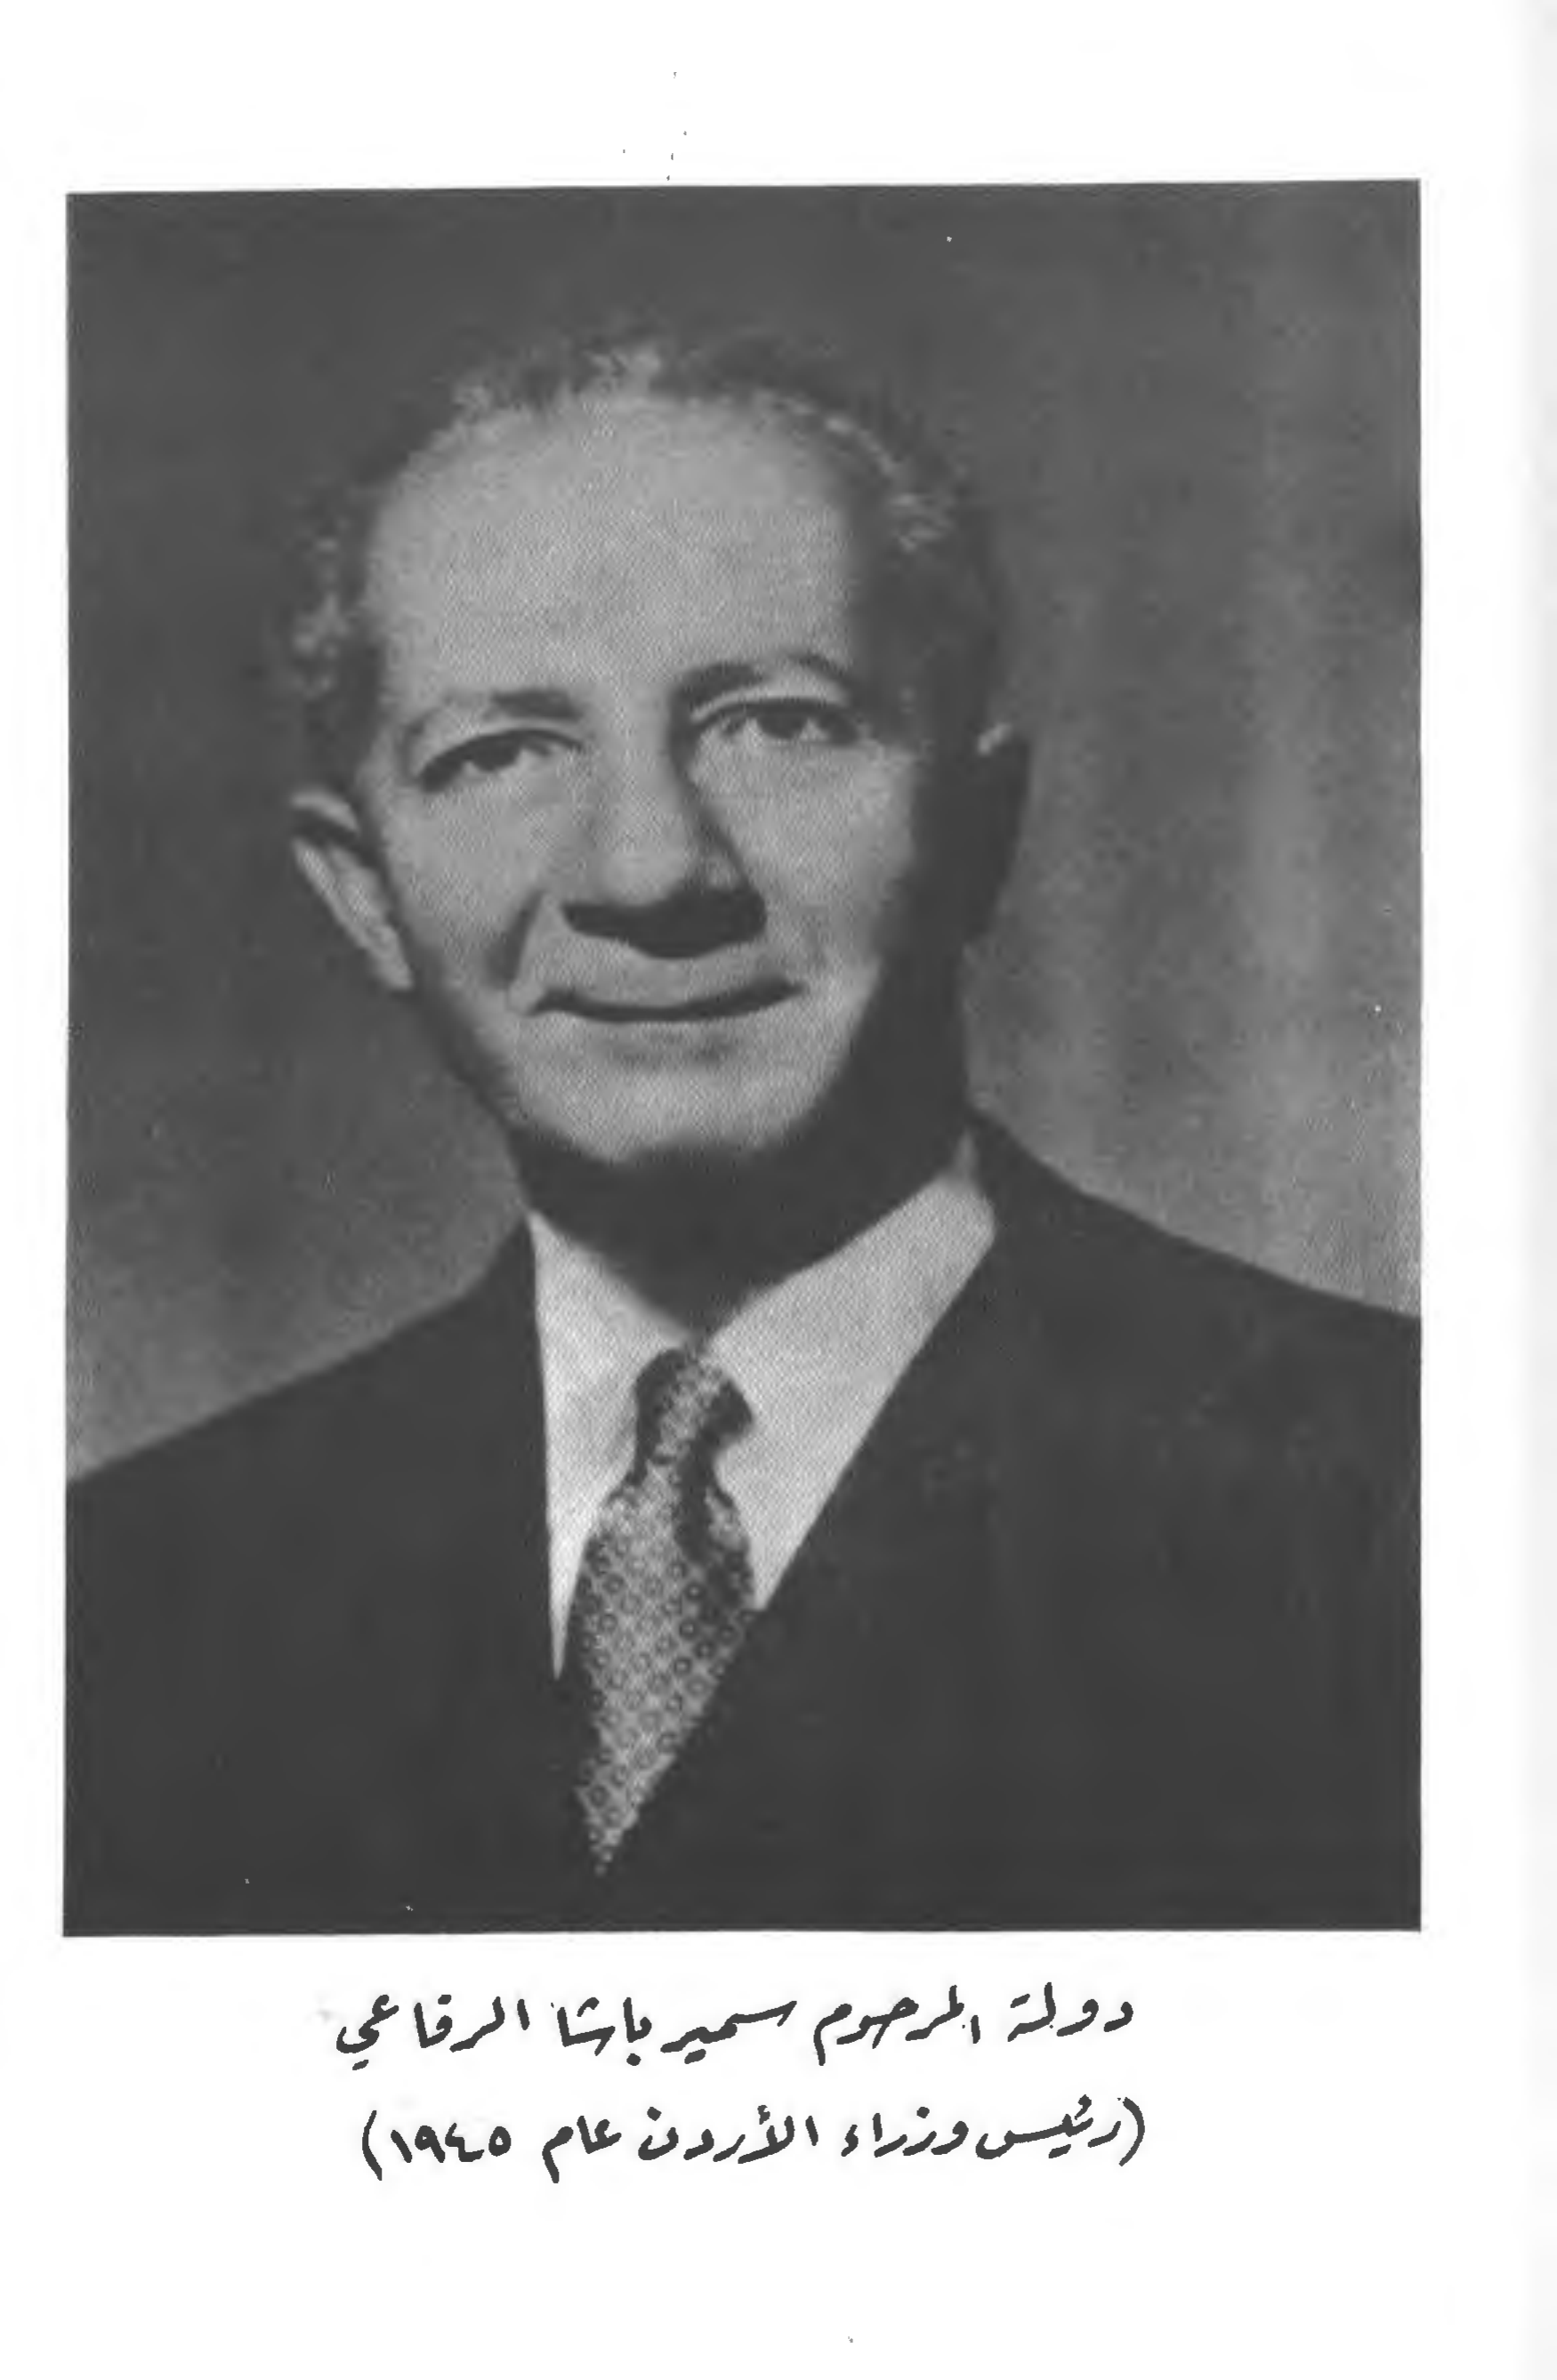 دولة المرحوم سمير باشا الرفاعي
(رئيس وزراء الأردن عام ١٩٤٥)